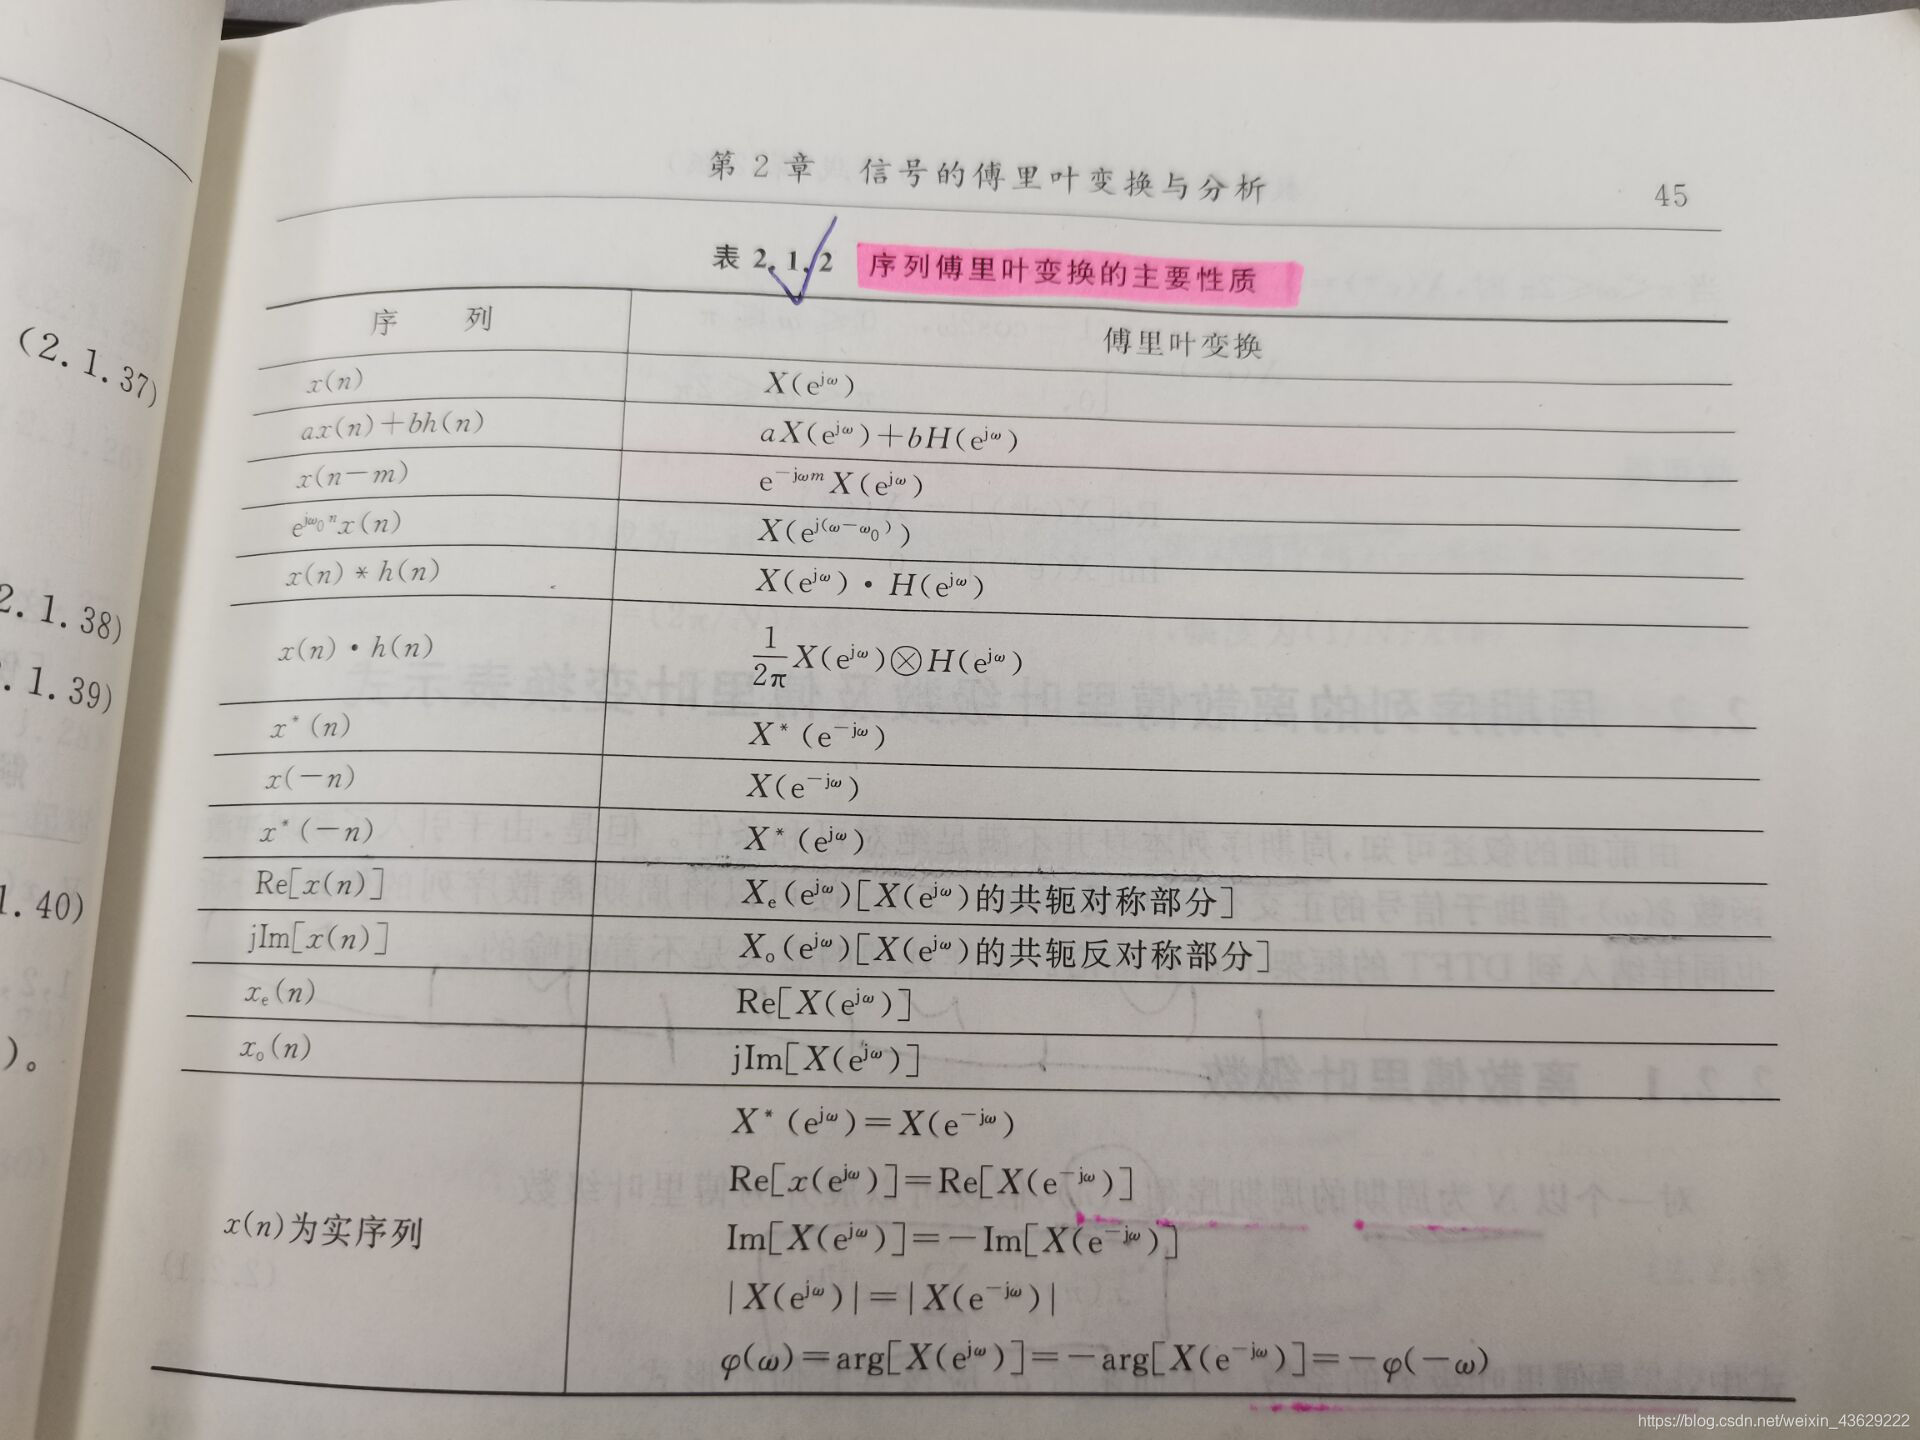 第 2 章 信号的傅里叶变换与分析 45
表 2.1.2 序列傅里叶变换的主要性质
序 列 傅里叶变换
x(n) X(e^{jω})
ax(n)+bh(n) aX(e^{jω})+bH(e^{jω})
x(n−m) e^{−jωm}X(e^{jω})
e^{jω₀n}x(n) X(e^{j(ω−ω₀)})
x(n)*h(n) X(e^{jω})·H(e^{jω})
x(n)·h(n) 1/2π X(e^{jω})⊗H(e^{jω})
x*(n) X*(e^{−jω})
x(−n) X(e^{−jω})
x*(−n) X*(e^{jω})
Re[x(n)] Xₑ(e^{jω})[X(e^{jω})的共轭对称部分]
jIm[x(n)] Xₒ(e^{jω})[X(e^{jω})的共轭反对称部分]
xₑ(n) Re[X(e^{jω})]
xₒ(n) jIm[X(e^{jω})]
X*(e^{jω})=X(e^{−jω})
Re[x(e^{jω})]=Re[X(e^{−jω})]
x(n)为实序列 Im[X(e^{jω})]=−Im[X(e^{−jω})]
|X(e^{jω})|=|X(e^{−jω})|
φ(ω)=arg[X(e^{jω})]=−arg[X(e^{−jω})]=−φ(−ω)
(2.1.37)
2.1.38)
.1.39)
1.40)
)。
https://blog.csdn.net/weixin_43629222